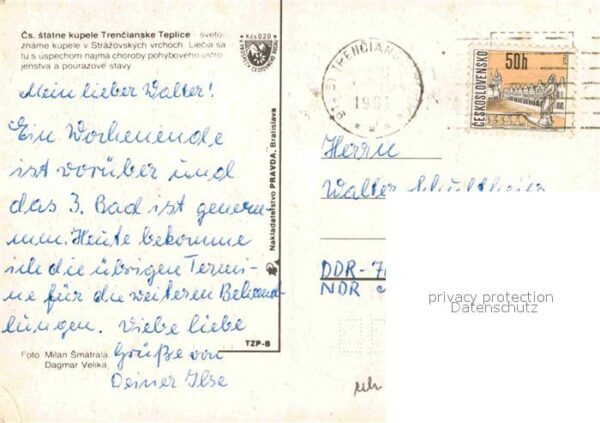 Čs. štátne kúpele Trenčianske Teplice - sveto-
známe kúpele v Strážovských vrchoch. Liečia sa
tu s úspechom najmä choroby pohybového ústro-
jenstva a poúrazové stavy
Mein lieber Walter!
Ein Wochenende
ist vorüber und
das 3. Bad ist genom-
men. Heute bekomme
ich die übrigen Termi-
ne für die weiteren Behand-
lungen. Viele liebe
Grüße von
Deiner Ilse
Foto Milan Šmátrala
Dagmar Veliká
Kčs 0,20
Nakladateľstvo PRAVDA, Bratislava
TZP-B
TRENČIANS
ČESKOSLOVENSKO
50h
Herrn
Walter
DDR-
NDR
privacy protection
Datenschutz